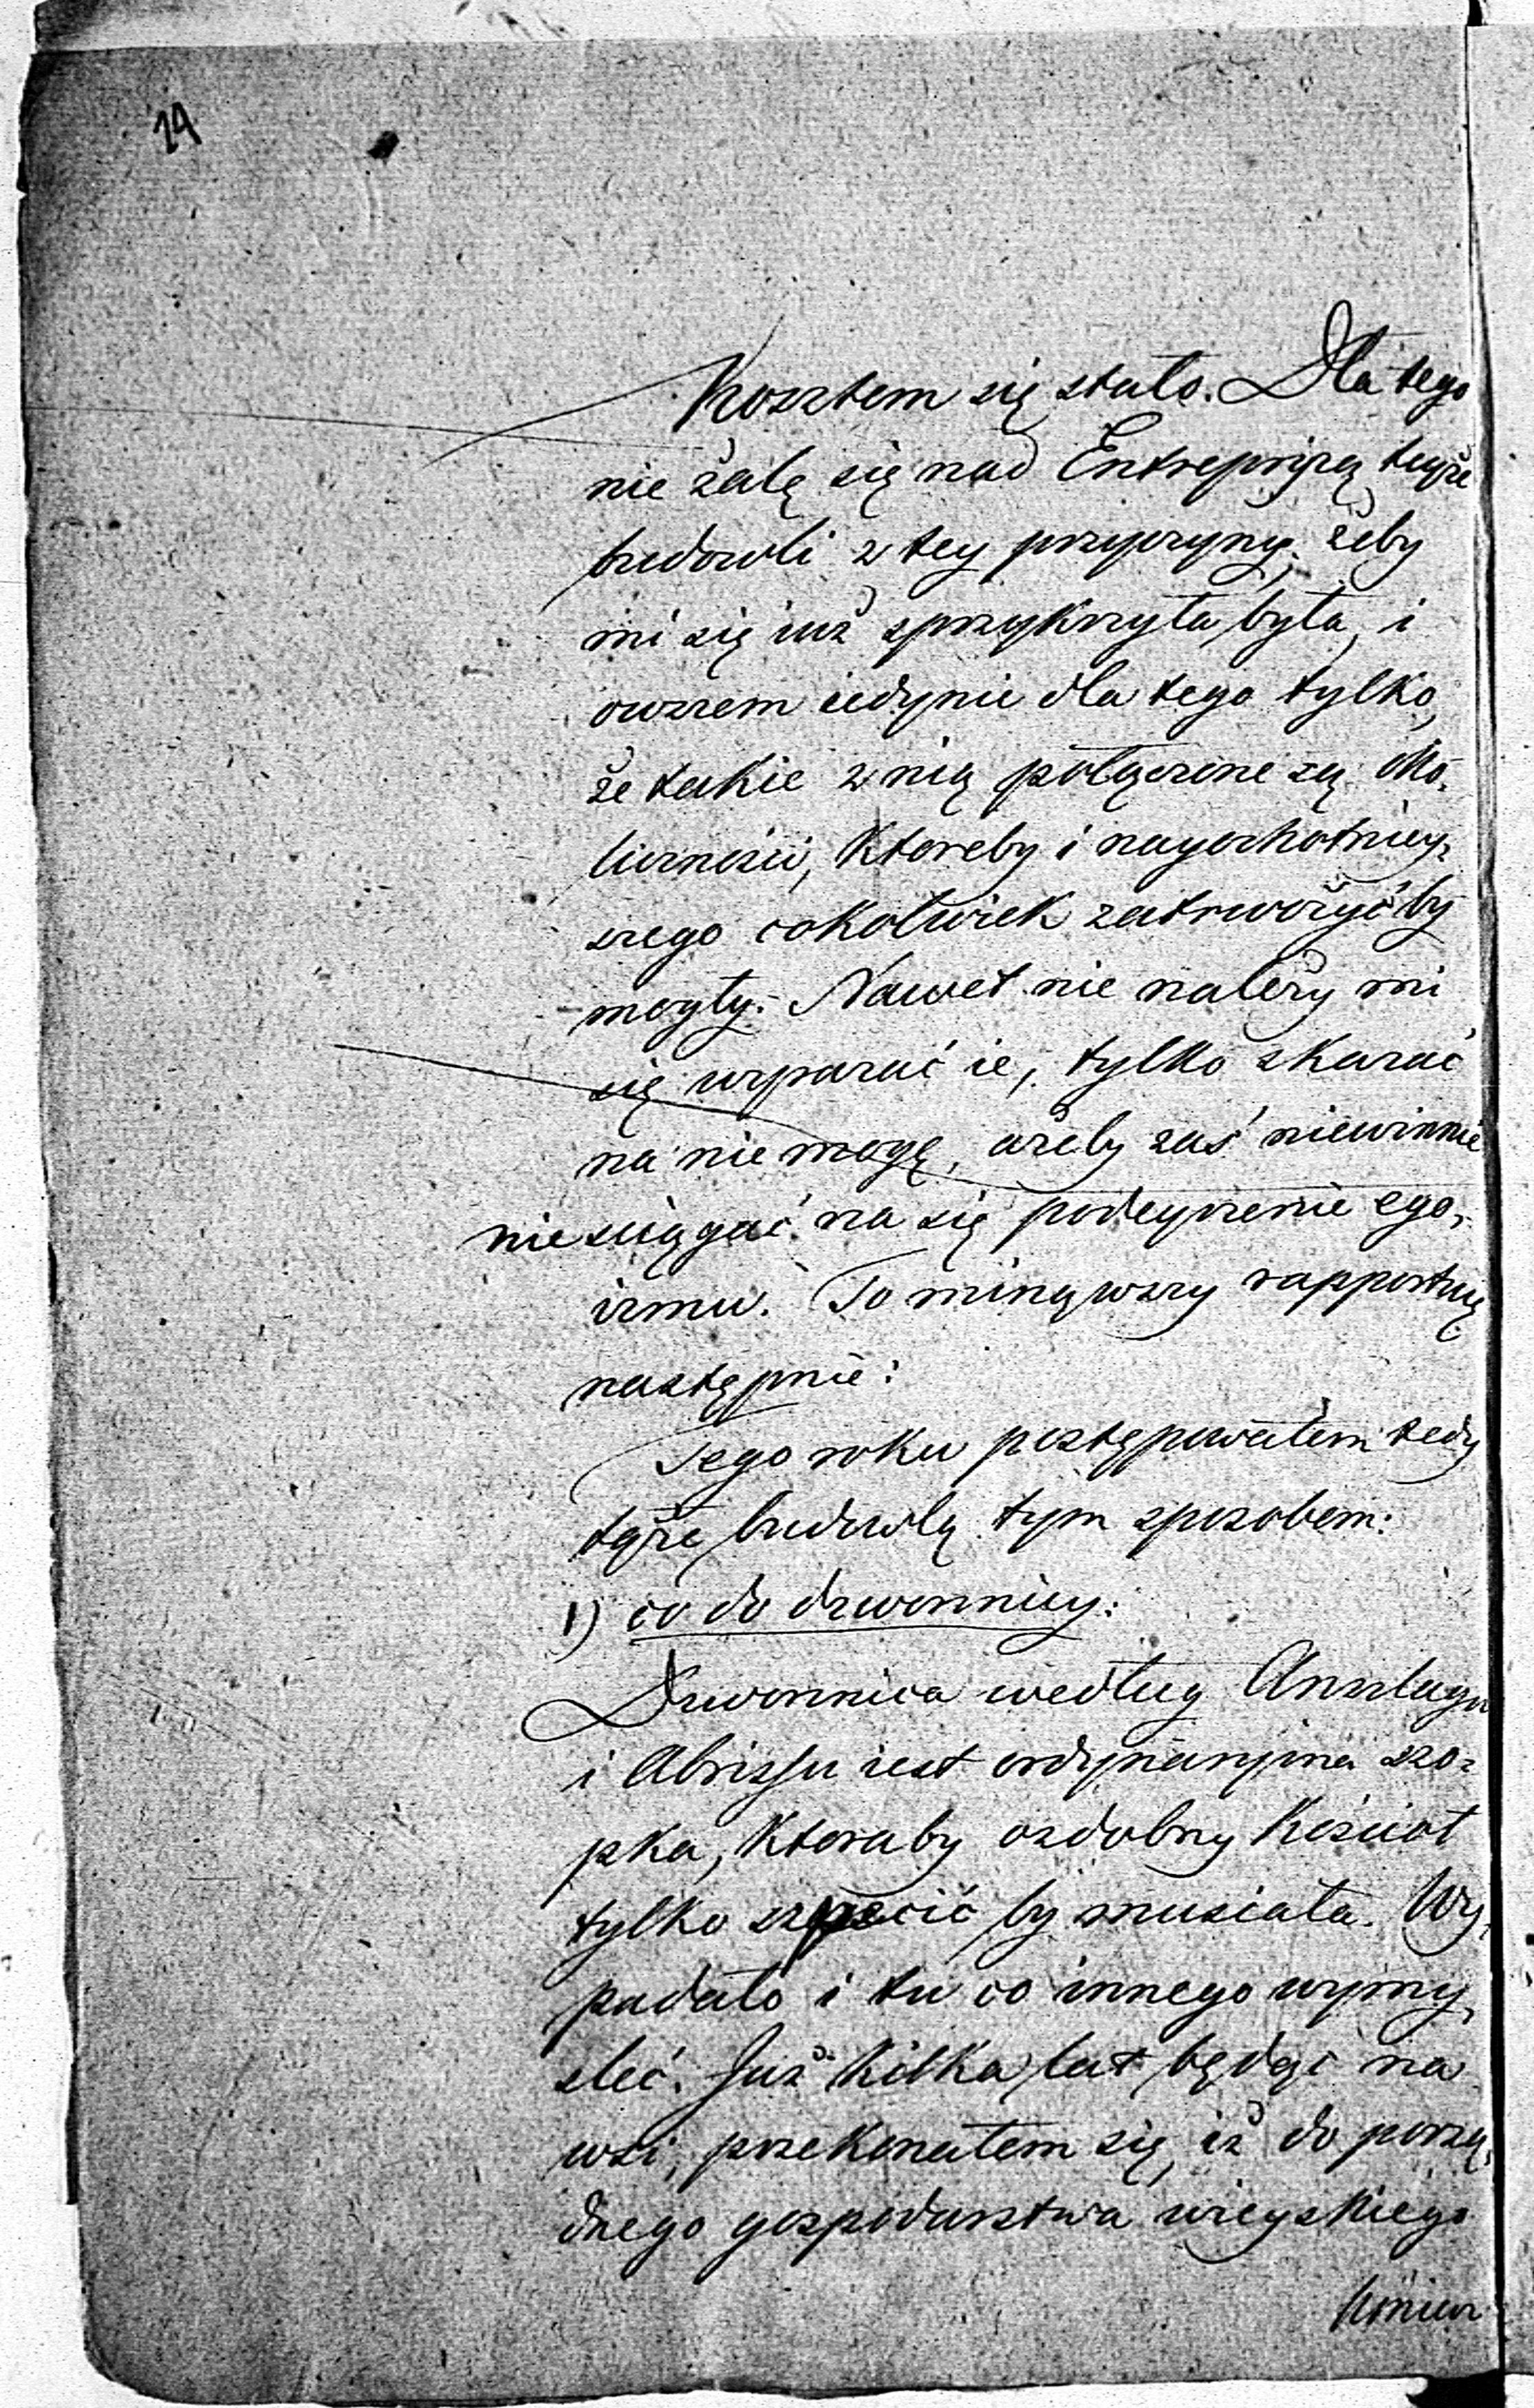 24
Kosztem się stało. Dla tego
nie żalę się nad Entrepryzą teyże
budowli z tey przyczyny, żeby
mi się iuż sprzykrzyła była, i
owszem iedynie dla tego tylko,
że takie z nią połączone są oko-
liczności, ktoreby i nayochotniey-
szego cokolwiek zatrwożyć by
mogły. Nawet nie należy mi
się wspierać ie, tylko skarać
na nie mogę, ażeby zaś niewinnie
nie sciągać na się podeyrzenie ego-
izmu. To minąwszy rapportuię
następnie:
Tego roku postępowałem tedy
tęże budowlą tym sposobem:
1) co do dzwonnicy:
Dzwonnica według Anszlagu
i Abrissu iest ordynaryina szo-
pka, ktoraby ozdobny Kościoł
tylko szpecić by musiała. Wy-
padało i tu co innego wymy-
sleć. Już kilka lat będąc na
wsi, przekonałem się, iż do porzą-
dnego gospodarstwa wieyskiego
koniecz